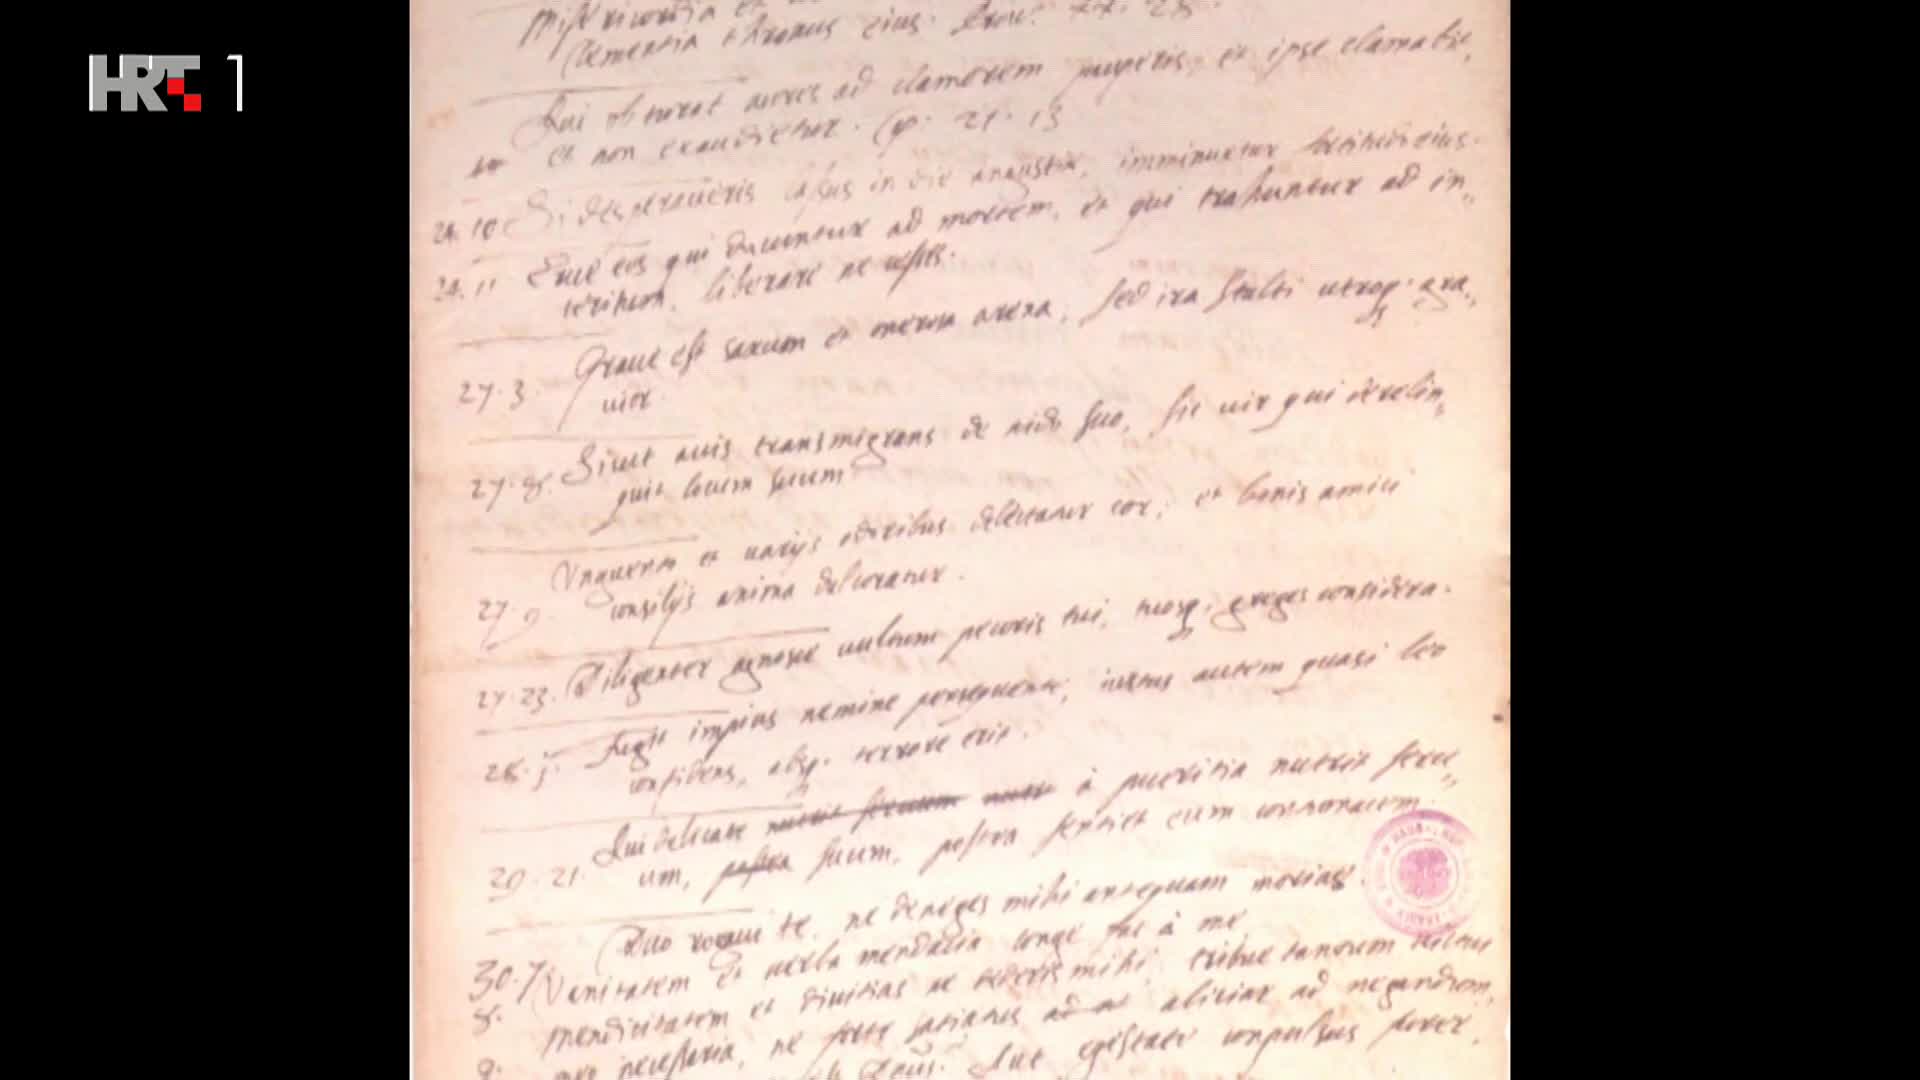 HRT 1
Misericordia et
clementia thronus eius. Prou. 20. 28.
Qui obturat aures ad clamorem pauperis, et ipse clamabit,
et non exaudietur. Cap. 21. 13
24. 10 Si desperaueris lassus in die angustiæ, imminuetur fortitudo eius.
24. 11 Erue eos qui ducuntur ad mortem, et qui trahuntur ad in„
teritum, liberare ne cesses.
Graue est saxum et onerosa arena, sed ira stulti utroq; gra„
27. 3 uior.
Sicut auis transmigrans de nido suo, sic uir qui derelin„
27. 8. quit locum suum
Unguento et uarijs odoribus delectatur cor, et bonis amici
27. 9 consilijs anima dulcoratur.
27. 23. Diligenter agnosce uultum pecoris tui, tuosq; greges considera.
Fugit impius nemine persequente, iustus autem quasi leo
28. j. confidens, absq; terrore erit.
Qui delicate nutrit seruum nutri à pueritia nutrit seru„
29. 21 um, postea suum, postea sentiet eum contumacem.
Duo rogaui te, ne deneges mihi antequam moriar.
30. 7 Vanitatem et uerba mendacia longe fac à me,
8. mendicitatem et diuitias ne dederis mihi, tribue tantum uictui
9. meo necessaria, ne forte satiatus ad alliciar ad negandum,
Dominus. Aut egestate compulsus furer,